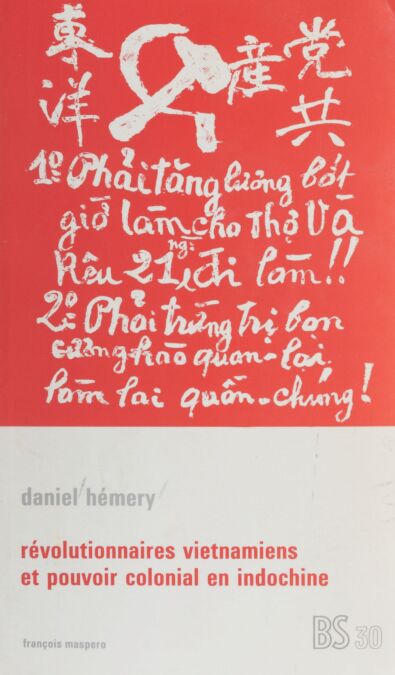 東 産 党
洋 共
1º Phải tăng lương bớt
giờ làm cho thợ Và
Kêu 21 ng: đi làm!!
2º Phải trừng trị bon
cường-hào quan-lại
làm lai quần-chúng!
daniel hémery
révolutionnaires vietnamiens
et pouvoir colonial en indochine
BS 30
françois maspero